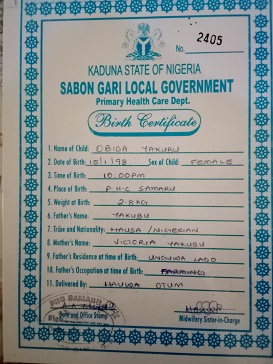 No. 2405
KADUNA STATE OF NIGERIA
SABON GARI LOCAL GOVERNMENT
Primary Health Care Dept.
Birth Certificate
1. Name of Child: OBIDA YAKUBU
2. Date of Birth: 15/1/98 Sex of Child: FEMALE
3. Time of Birth: 10:00PM
4. Place of Birth P.H.C SAMARU
5. Weight at Birth: 2.8KG
6. Father's Name: YAKUBU
7. Tribe and Nationality: HAUSA / NIGERIAN
8. Mother's Name: VICTORIA YAKUBU
9. Father's Residence at time of Birth: UNGUWA LADO
10. Father's Occupation at time of Birth: FARMING
11. Delivered By: HAUWA OTUM
Date and Office Stamp
Midwifery Sister-in-Charge